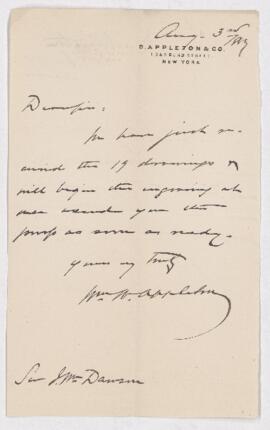 Aug. 3rd
D. APPLETON & CO.
NEW YORK
Dear Sir:
We have just re-
ceived the 19 drawings &
will begin the engraving at
once & send you the
proofs as soon as ready.
Yours very truly
Wm W. Appleton
Sir J. Wm Dawson